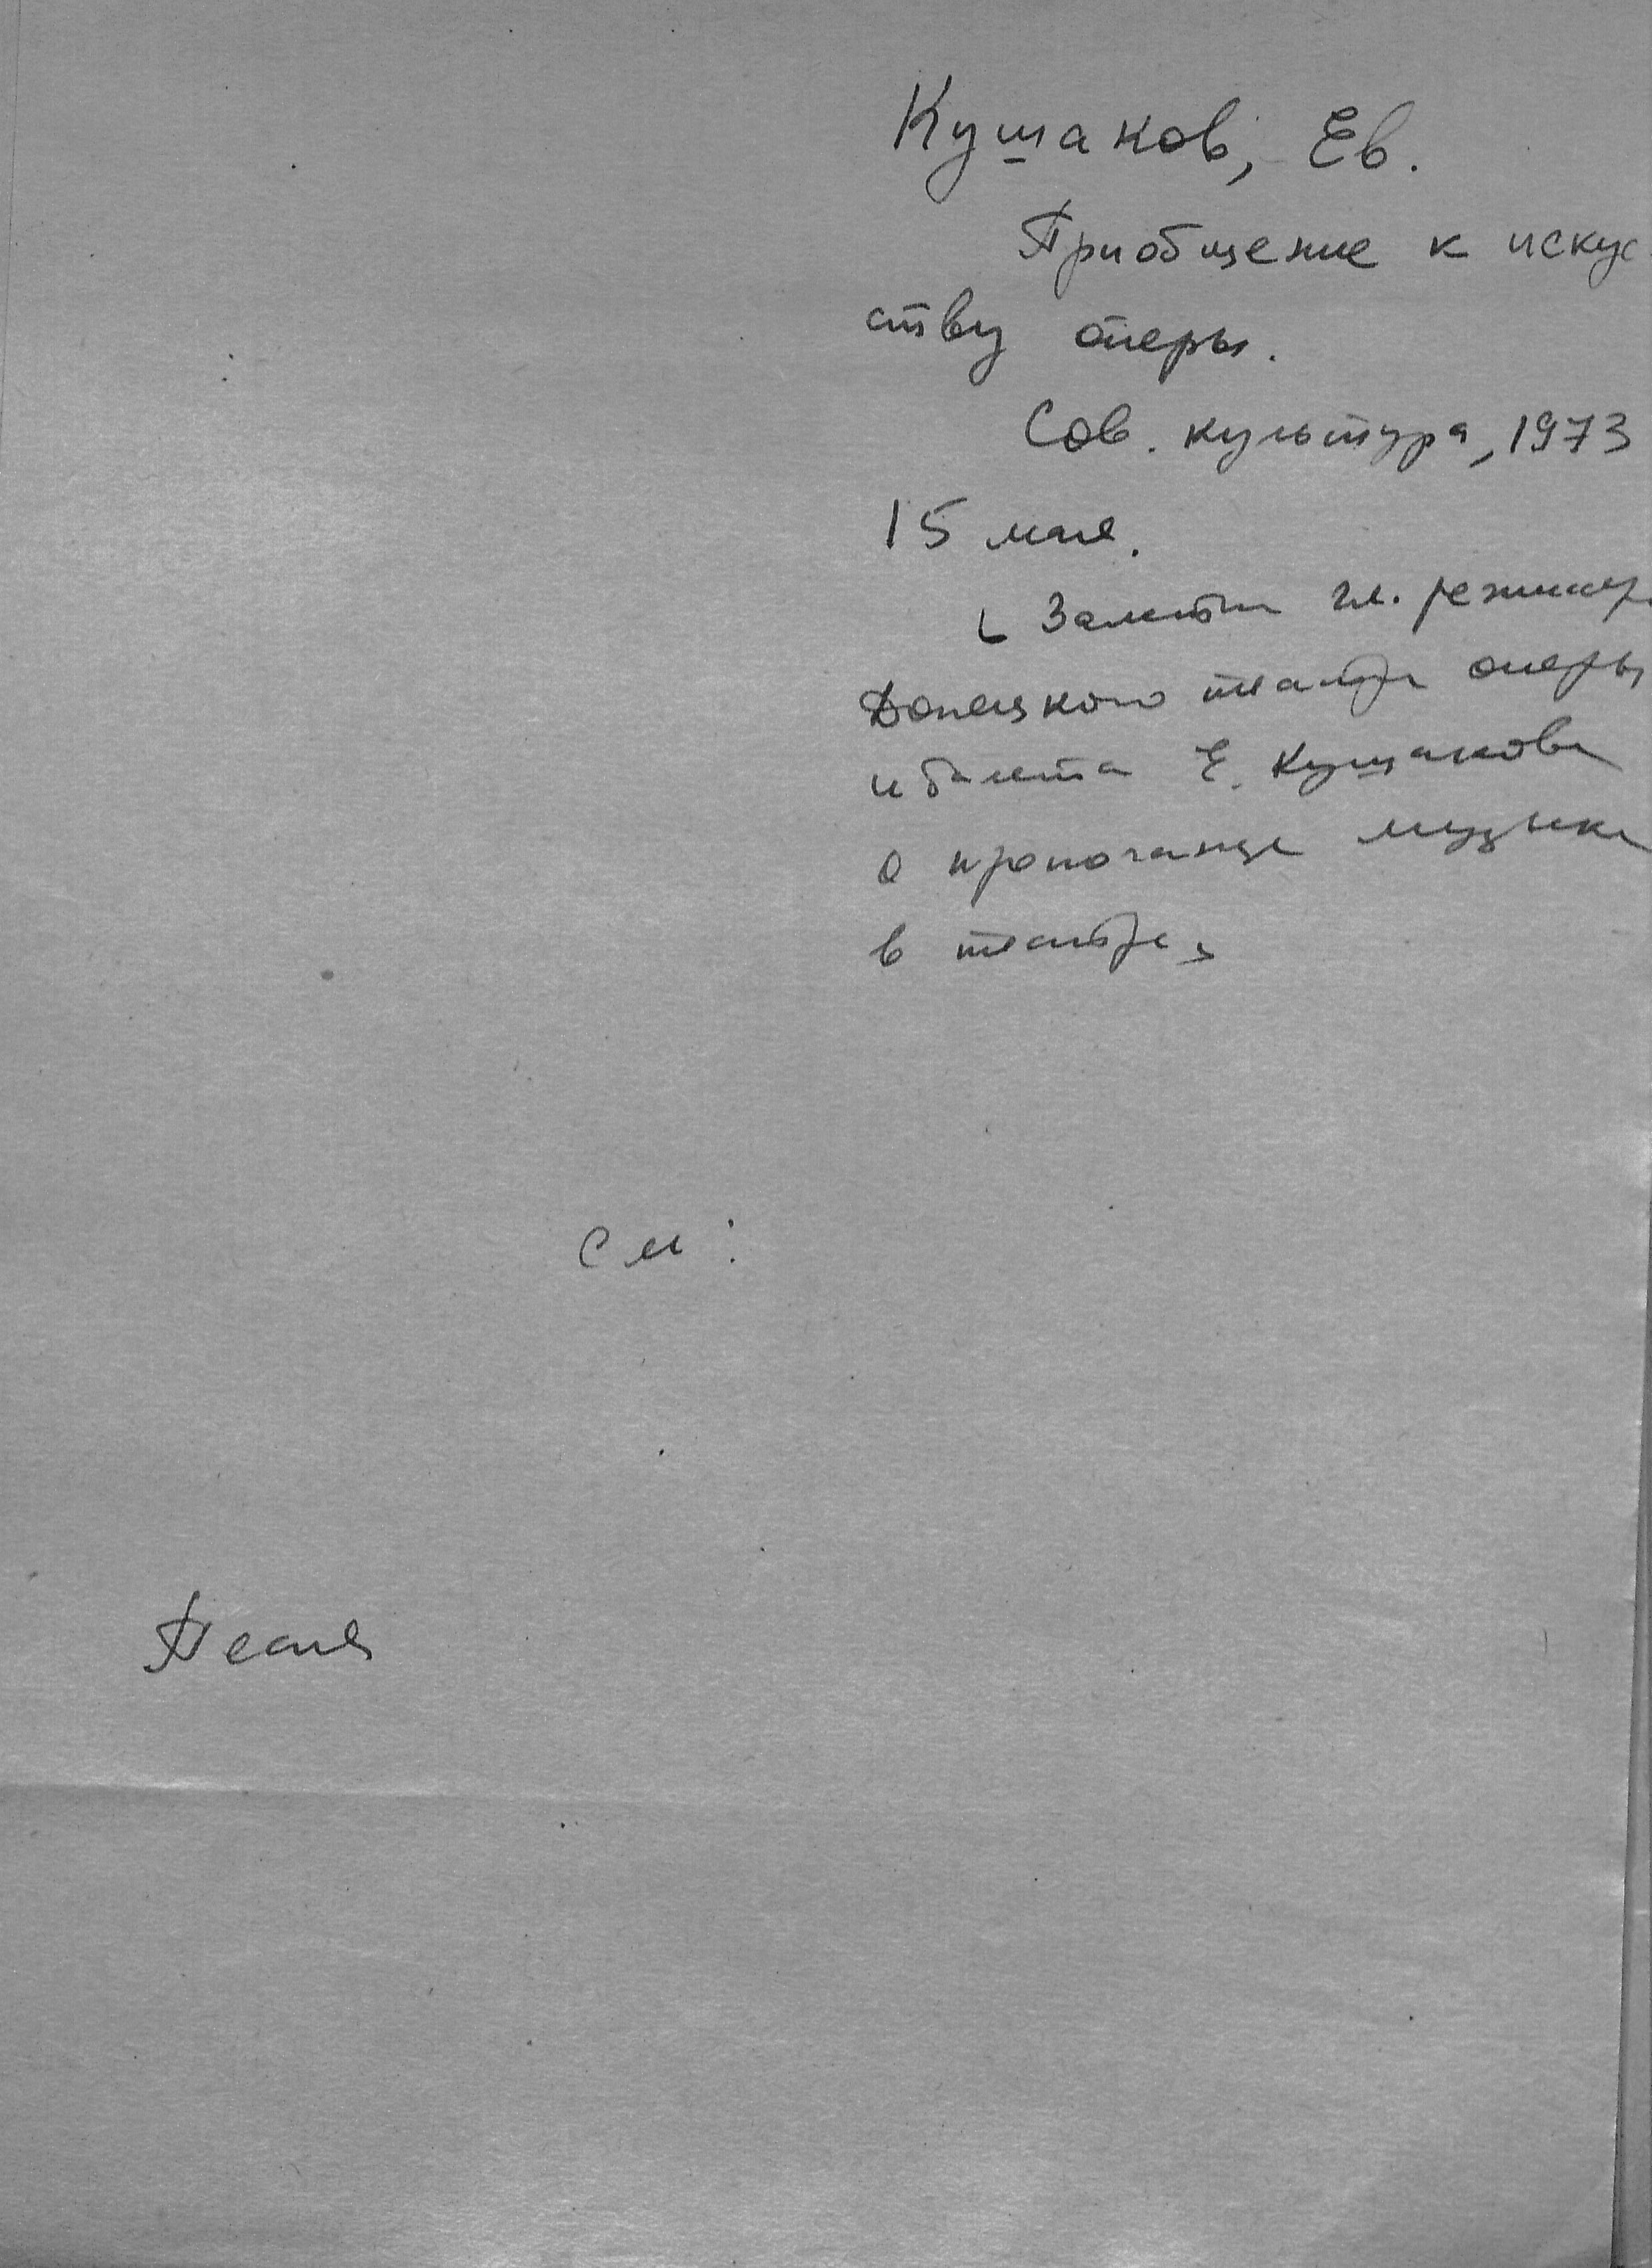 Кушаков, Ев.
Приобщение к искус
ству оперы.
Сов. культура, 1973
15 мая.
Заметки гл. режиссер
Донецкого театра оперы
и балета Е. Кушакова
о пропаганде музыки
в театре
см:
Песня